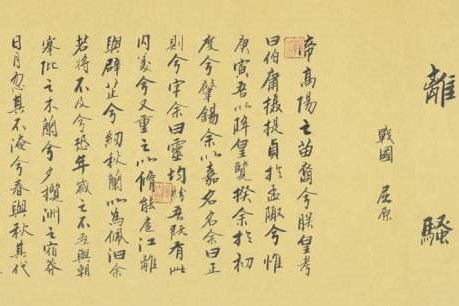 離騷
戰國 屈原
帝高陽之苗裔兮朕皇考
曰伯庸攝提貞於孟陬兮惟
庚寅吾以降皇覽揆余於初
度兮肇錫余以嘉名名余曰正
則兮字余曰靈均紛吾既有此
內美兮又重之以脩能扈江離
與辟芷兮紉秋蘭以為佩汩余
若將不及兮恐年歲之不吾與朝
搴阰之木蘭兮夕攬洲之宿莽
日月忽其不淹兮春與秋其代